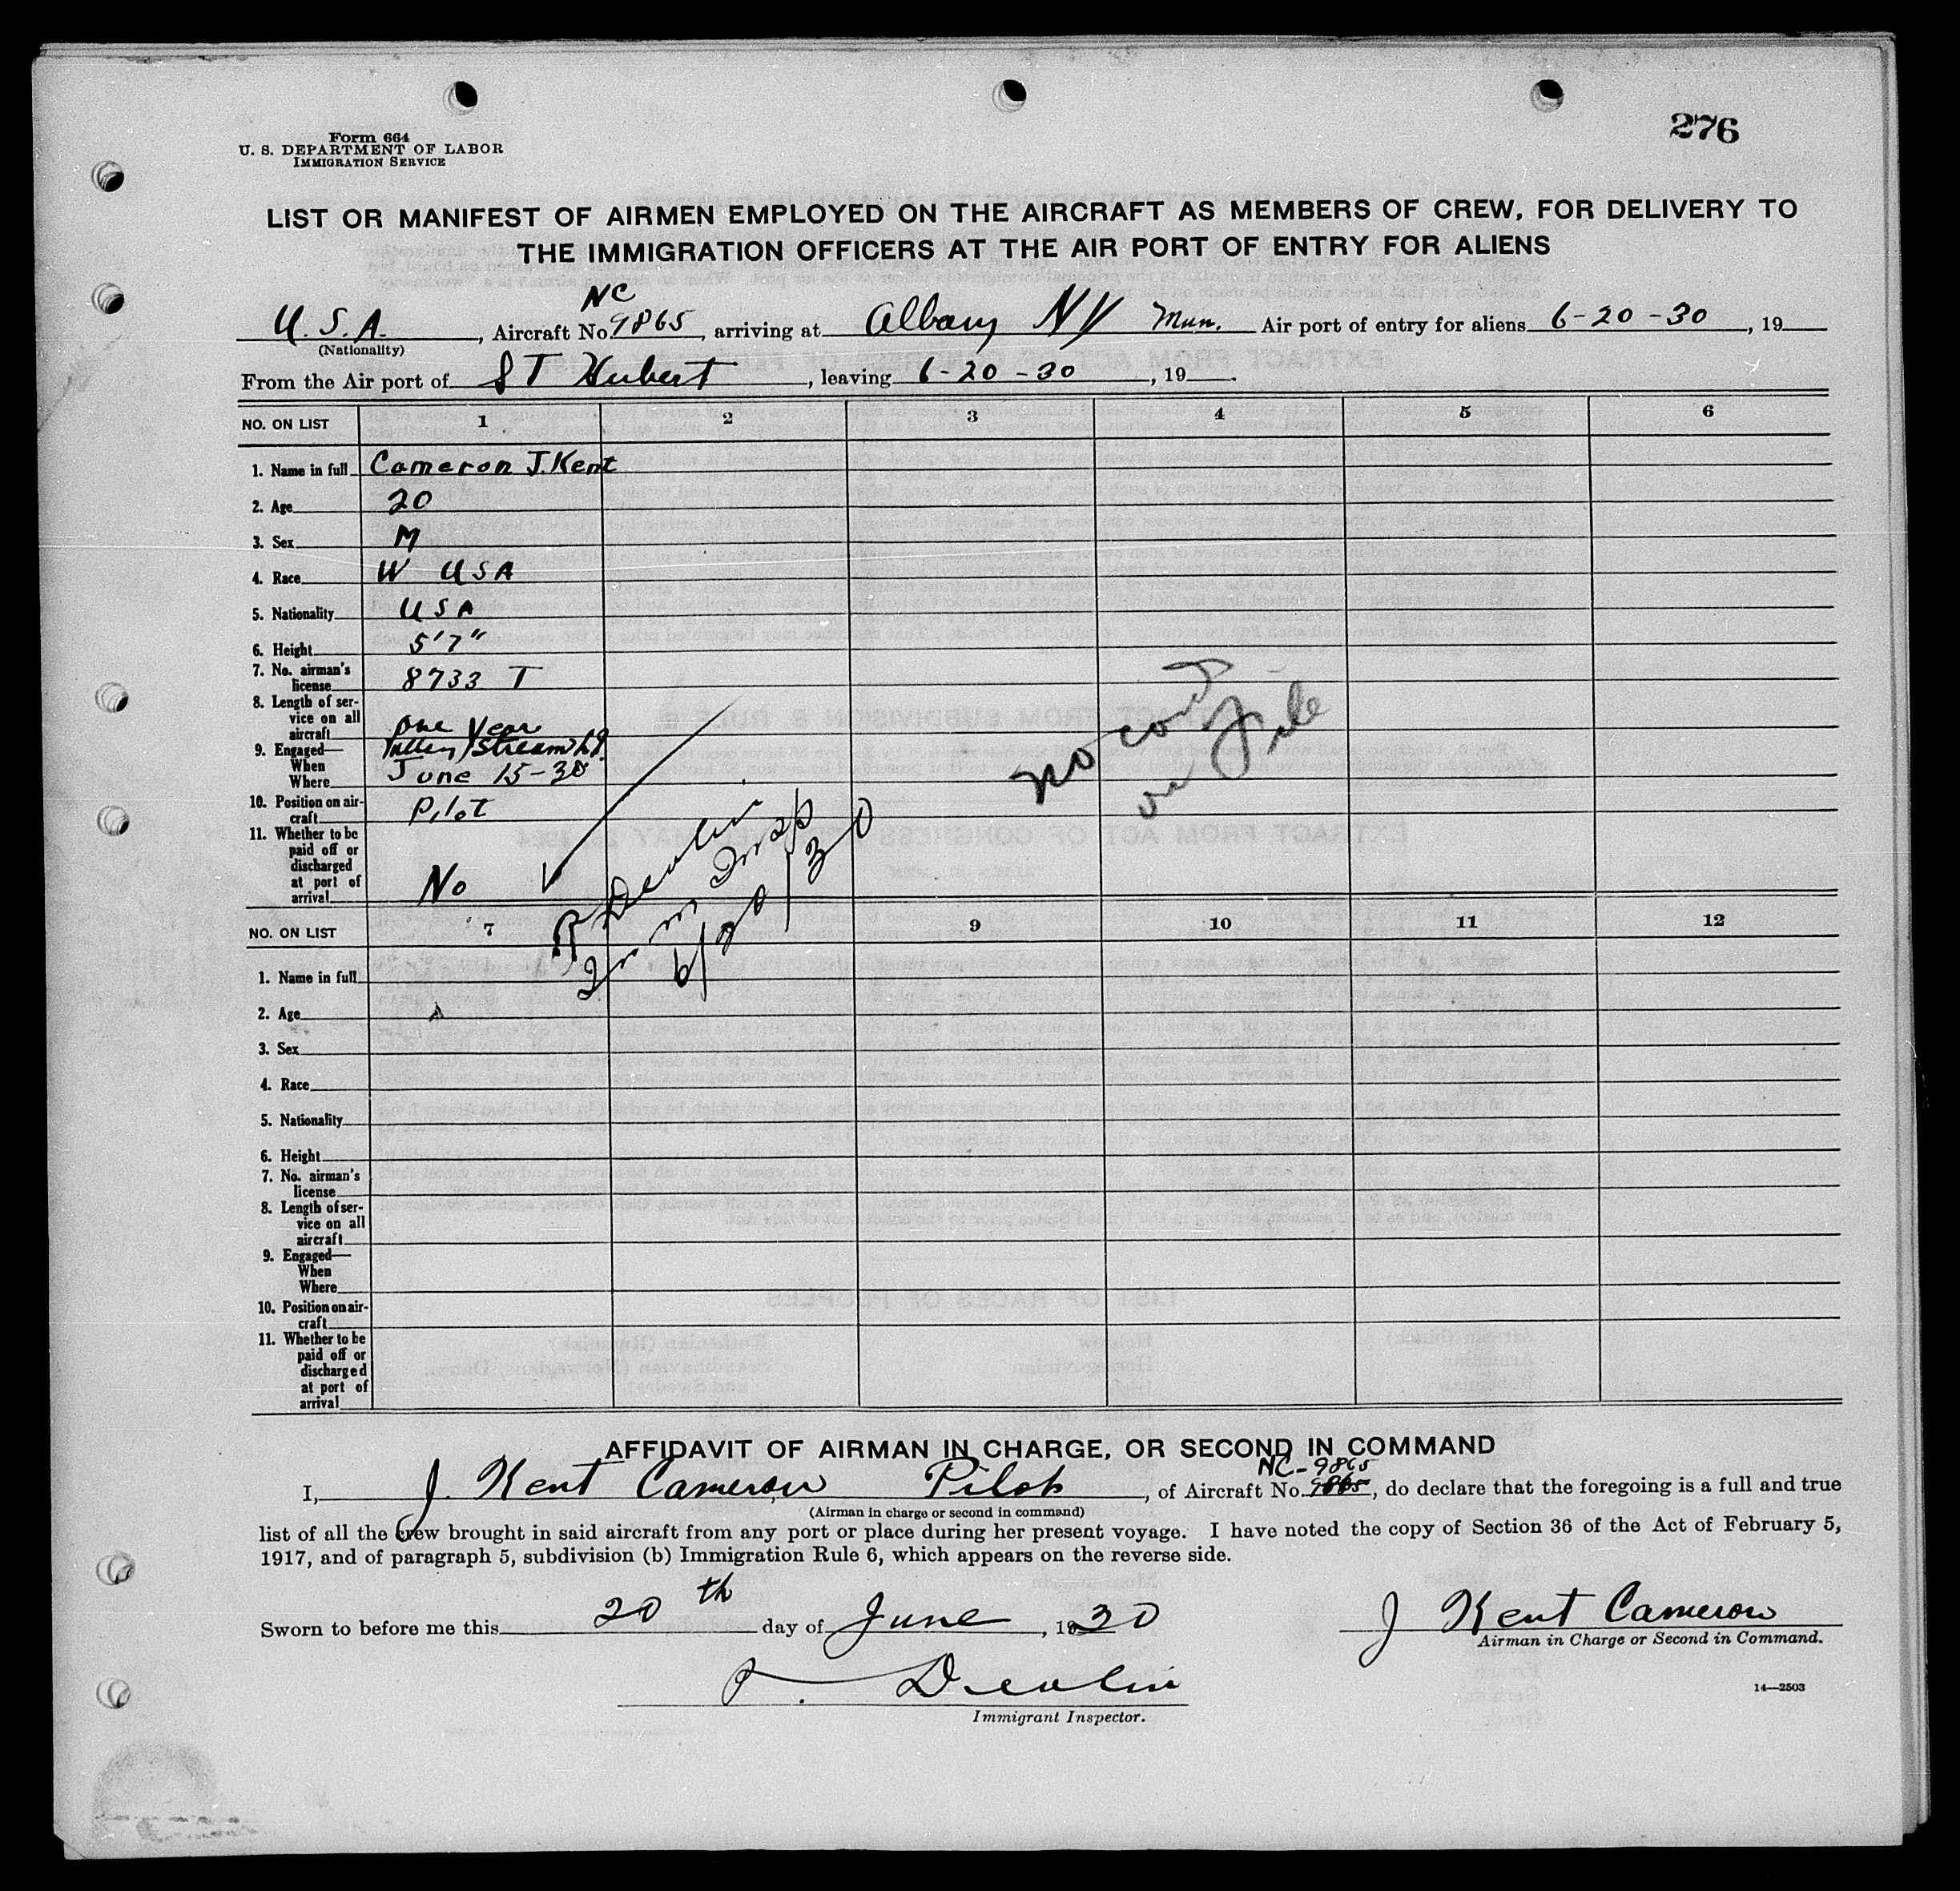 276
Form 664
U. S. DEPARTMENT OF LABOR
IMMIGRATION SERVICE
LIST OR MANIFEST OF AIRMEN EMPLOYED ON THE AIRCRAFT AS MEMBERS OF CREW, FOR DELIVERY TO
THE IMMIGRATION OFFICERS AT THE AIR PORT OF ENTRY FOR ALIENS
NC
U.S.A. , Aircraft No. 9865 , arriving at Albany NY Mun. Air port of entry for aliens 6-20-30 , 19
(Nationality)
From the Air port of ST Hubert , leaving 6-20-30 , 19 .
NO. ON LIST 1 2 3 4 5 6
1. Name in full Cameron J. Kent
2. Age 20
3. Sex M
4. Race W USA
5. Nationality USA
6. Height 5'7"
7. No. airman's
license 8733 T
8. Length of ser-
vice on all
aircraft One Year
9. Engaged— Valley Stream
When
Where June 15-30
10. Position on air-
craft Pilot
11. Whether to be
paid off or
discharged
at port of
arrival No
Devlin
Imm Insp
6/20/30
no card
on file
NO. ON LIST 7 9 10 11 12
1. Name in full
2. Age
3. Sex
4. Race
5. Nationality
6. Height
7. No. airman's
license
8. Length of ser-
vice on all
aircraft
9. Engaged—
When
Where
10. Position on air-
craft
11. Whether to be
paid off or
discharged
at port of
arrival
AFFIDAVIT OF AIRMAN IN CHARGE, OR SECOND IN COMMAND
NC-9865
I, J. Kent Cameron Pilot , of Aircraft No. 9865 , do declare that the foregoing is a full and true
(Airman in charge or second in command)
list of all the crew brought in said aircraft from any port or place during her present voyage. I have noted the copy of Section 36 of the Act of February 5,
1917, and of paragraph 5, subdivision (b) Immigration Rule 6, which appears on the reverse side.
Sworn to before me this 20th day of June , 1930
J Kent Cameron
Airman in Charge or Second in Command.
Devlin
Immigrant Inspector.
14—2503